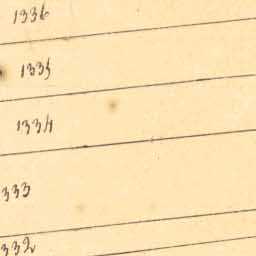 1336
1335
1334
333
332